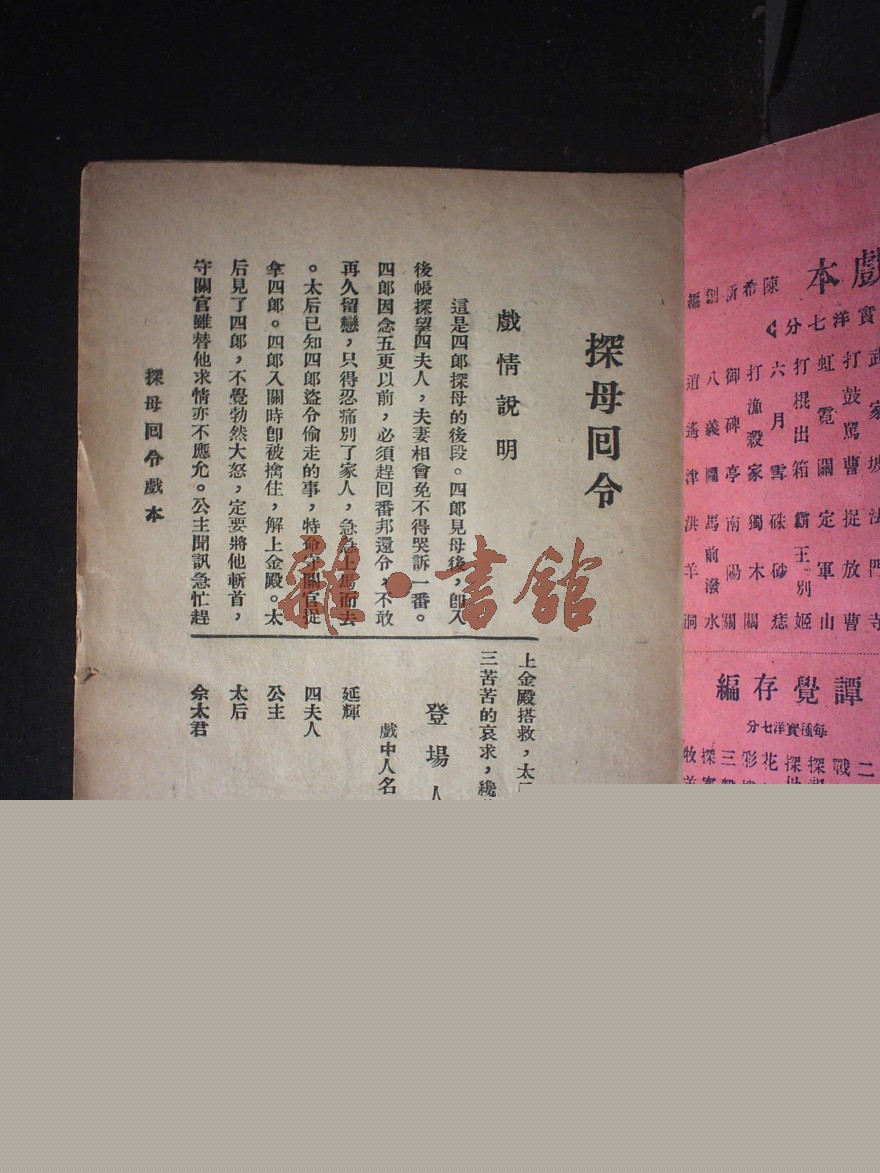 探母回令
戲情說明
這是四郎探母的後段。四郎見母後，卽入
後帳探望四夫人，夫妻相會免不得哭訴一番。
四郎因念五更以前，必須趕回番邦還令，不敢
再久留戀，只得忍痛別了家人，急急上馬而去
。太后已知四郎盜令偷走的事，特命守關官捉
拿四郎。四郎入關時卽被擒住，解上金殿。太
后見了四郎，不覺勃然大怒，定要將他斬首，
守關官雖替他求情亦不應允。公主聞訊急忙趕
上金殿搭救，太
三苦苦的哀求，纔
登場人
戲中人名
延輝
四夫人
公主
太后
佘太君
探母回令戲本
雜·書館
戲本
陳希新創編
實洋七分
武家坡 法門寺
打鼓罵曹 捉放曹
虹霓關 定軍山
打棍出箱 霸王別姬
六月雪 硃砂痣
打漁殺家 獨木關
御碑亭 南陽關
八義圖 馬前潑水
逍遙津 洪羊洞
譚覺存編
每種實洋七分
二
戰
探
探
花
彩
三
探
牧